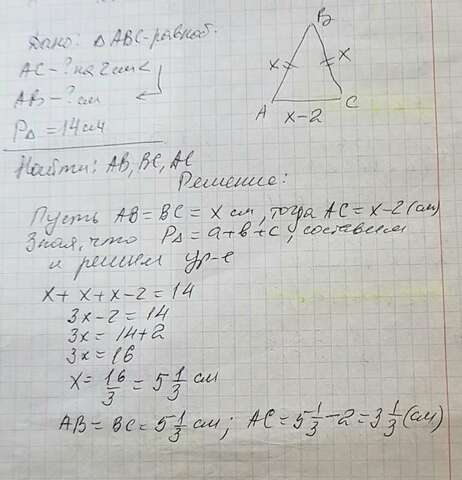 Дано: △ABC-равноб.
AC - ? на 2 см <
AB - ? см
P△ = 14 см
Найти: AB, BC, AC
B
x
x
A
C
x-2
Решение:
Пусть AB = BC = x см, тогда AC = x-2 (см)
Зная, что P△ = a+b+c, составим
и решим ур-е
x + x + x - 2 = 14
3x - 2 = 14
3x = 14+2
3x = 16
x = 16/3 = 5 1/3 см
AB = BC = 5 1/3 см; AC = 5 1/3 - 2 = 3 1/3 (см)